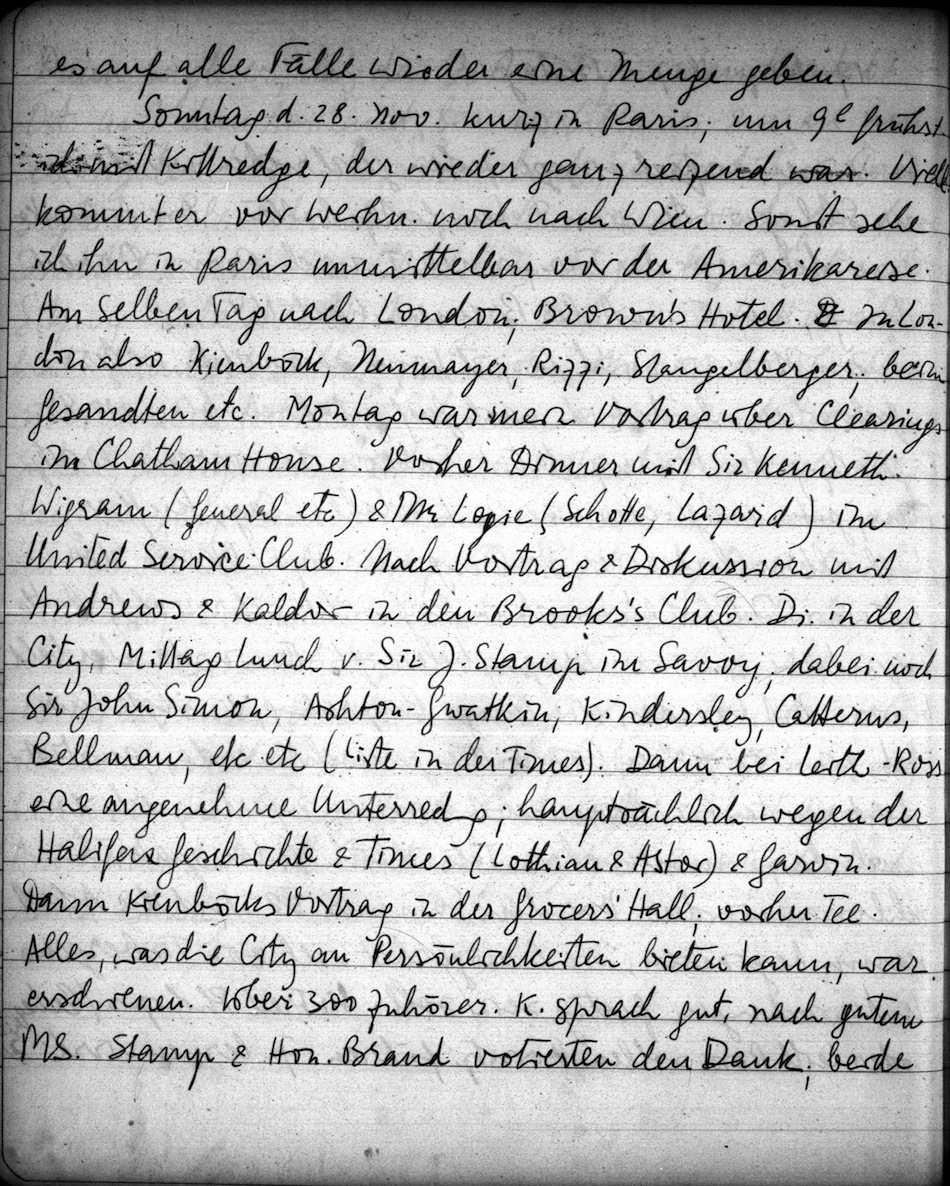 es auf alle Fälle wieder eine Menge geben.
Sonntag d. 28. Nov. kurz in Paris, um 9h frühst.
ich mit Kittredge, der wieder ganz reizend war. Viell.
kommt er vor Weihn. noch nach Wien. Sonst sehe
ich ihn in Paris unmittelbar vor der Amerikareise.
Am selben Tag nach London, Brown's Hotel. In Lon-
don also Kienböck, Neumayer, Rizzi, Stangelberger, beim
Gesandten etc. Montag war mein Vortrag über Clearings
im Chatham House. Vorher Dinner mit Sir Kenneth
Wigram (General etc) & Mr Logie (Schotte, Lazard) im
United Service Club. Nach Vortrag & Diskussion mit
Andrews & Kaldor in den Brooks's Club. Di. in der
City, Mittag Lunch v. Sir J. Stamp im Savoy, dabei noch
Sir John Simon, Ashton-Gwatkin, Kindersley, Catterns,
Bellman, etc etc (Liste in der Times). Dann bei Leith-Ross
eine angenehme Unterredg; hauptsächlich wegen der
Halifax Geschichte & Times (Lothian & Astor) & Garvin.
Dann Kienböcks Vortrag in der Grocers' Hall, vorher Tee.
Alles, was die City an Persönlichkeiten bieten kann, war
erschienen. Über 300 Zuhörer. K. sprach gut, nach gutem
MS. Stamp & Hon. Brand votierten den Dank, beide